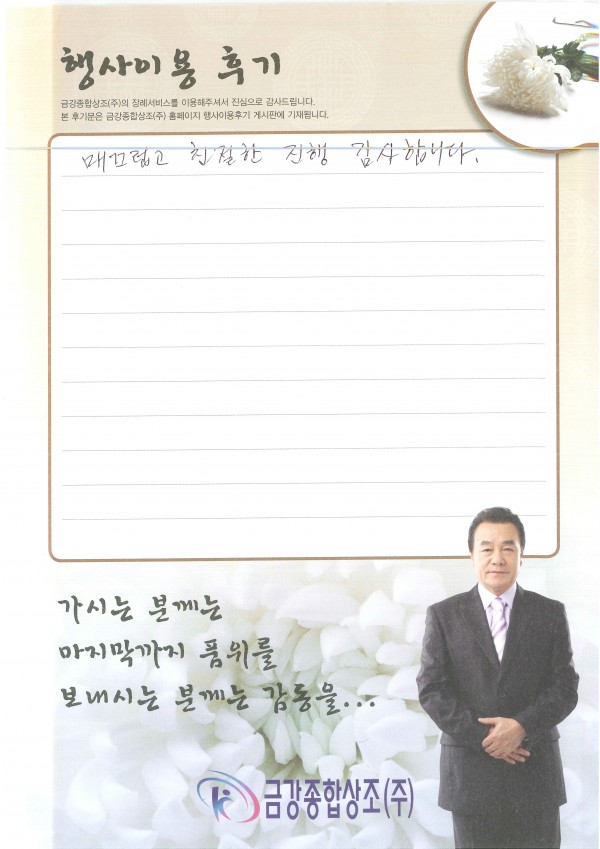 행사이용 후기
금강종합상조(주)의 장례서비스를 이용해주셔서 진심으로 감사드립니다.
본 후기문은 금강종합상조(주) 홈페이지 행사이용후기 게시판에 기재됩니다.
매끄럽고 친절한 진행 감사합니다.
가시는 분께는
마지막까지 품위를
보내시는 분께는 감동을...
금강종합상조(주)